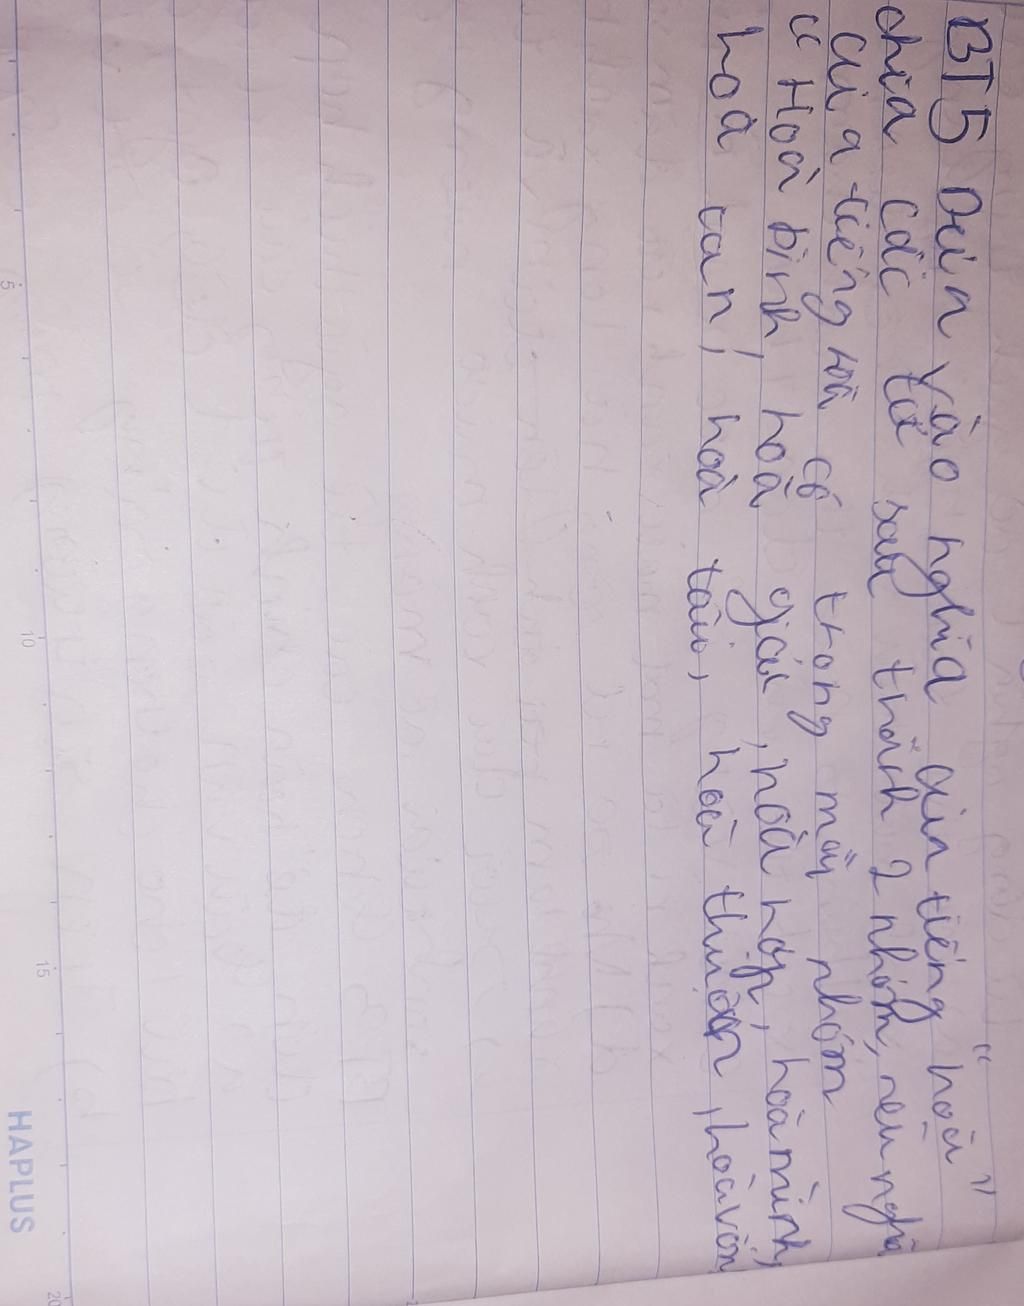 BT5 Dựa vào nghĩa của tiếng "hoà"
chia các từ sau thành 2 nhóm, nêu nghĩa
của tiếng hoà có trong mỗi nhóm
" Hoà bình, hoà giải, hoà hợp, hoà mình,
hoà tan, hoà tấu, hoà thuận, hoà vốn
5
10
15
20
HAPLUS